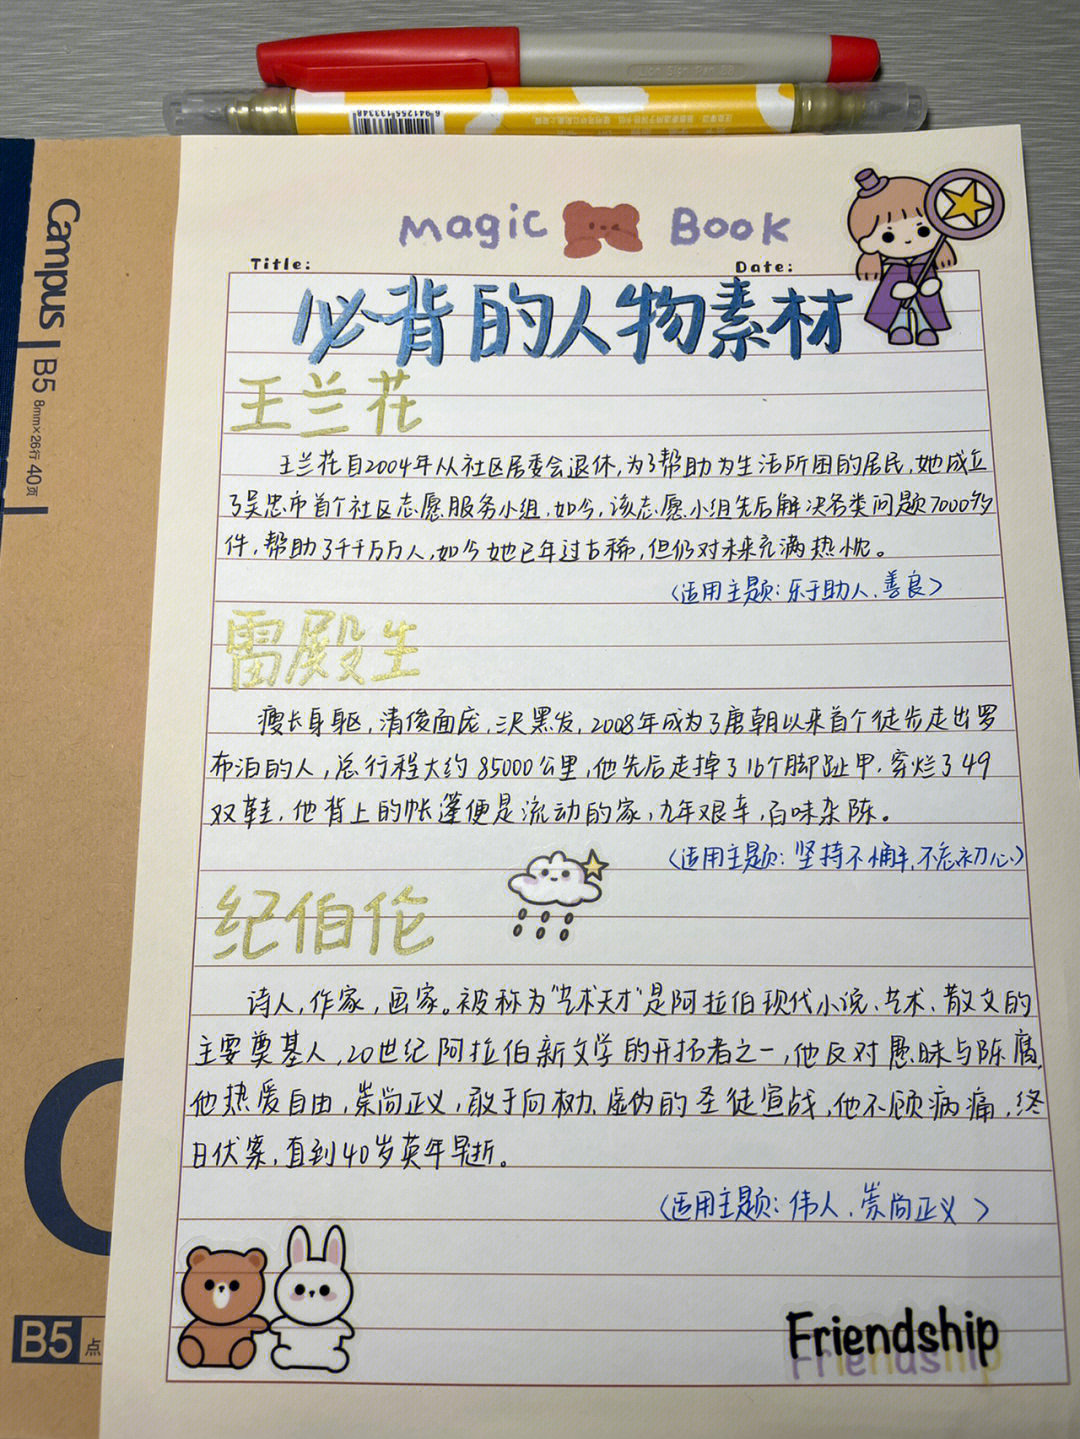 6 941255 133348
Campus
B5 8mm×26行 40页
Magic Book
Title: Date:
必背的人物素材
王兰花
王兰花自2004年从社区居委会退休,为了帮助为生活所困的居民,她成立
了吴忠市首个社区志愿服务小组,如今,该志愿小组先后解决各类问题7000多
件,帮助了千千万万人,如今她已年过古稀,但仍对未来充满热忱。
(适用主题:乐于助人、善良)
雷殿生
瘦长身躯,清俊面庞,三尺黑发,2008年成为了唐朝以来首个徒步走出罗
布泊的人,总行程大约85000公里,他先后走掉了16个脚趾甲,穿烂了49
双鞋,他背上的帐篷便是流动的家,九年艰辛,百味杂陈。
(适用主题:坚持不懈、不忘初心)
纪伯伦
诗人,作家,画家。被称为"艺术天才"是阿拉伯现代小说、艺术、散文的
主要奠基人,20世纪阿拉伯新文学的开拓者之一,他反对愚昧与陈腐,
他热爱自由,崇尚正义,敢于向权力、虚伪的圣徒宣战,他不顾病痛,终
日伏案,直到40岁英年早逝。
(适用主题:伟人、崇尚正义)
B5 点
Friendship